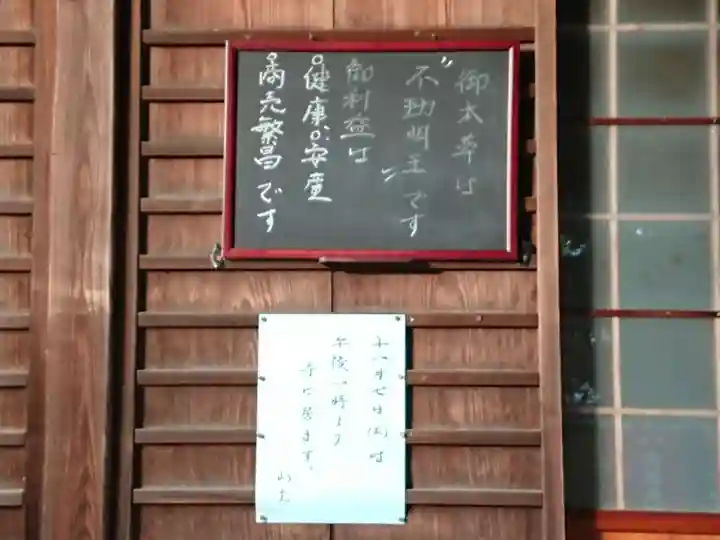 御本尊は
"不動明王"です
御利益は
○健康○安産
○商売繁昌です
午後一時より
寺に居ます。